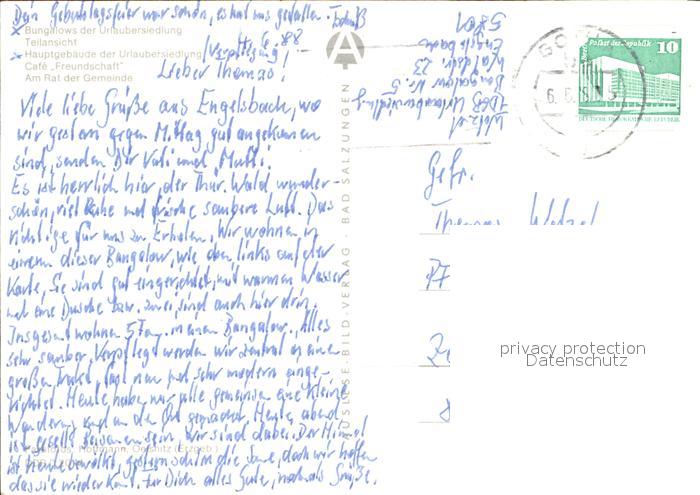 Dein Geburtstagsfeier war schön, es hat uns gefallen.
Bungalows der Urlaubersiedlung
Teilansicht
Hauptgebäude der Urlaubersiedlung
(Verpflegung)
Café „Freundschaft"
Am Rat der Gemeinde
Lieber Thomas!
Viele liebe Grüße aus Engelsbach, wo
wir gestern gegen Mittag gut angekommen
sind, senden Dir Vati und Mutti.
Es ist herrlich hier, der Thür. Wald wunder-
schön, viel Ruhe und frische saubere Luft. Das
richtige für uns zu Erholen. Wir wohnen in
einem dieser Bungalow, wie oben links auf der
Karte, Sie sind gut eingerichtet, mit warmen Wasser
und eine Dusche bzw. zwei, sind auch hier drin.
Insgesamt wohnen 5 Fam. in einem Bungalow. Alles
sehr sauber. Verpflegt werden wir zentral in einer
großen
sehr modern einge-
richtet. Heute haben wir alle gemeinsam eine kleine
Wanderung rund um den Ort gemacht. Heute abend
ist gesell. Beisammensein, wir sind dabei. Der Himmel
ist heute bewölkt, gestern schien die Sonne, doch wir hoffen
das sie wiederkommt. Für Dich alles Gute, nochmals Grüße.
AUSLESE-BILD-VERLAG · BAD SALZUNGEN
5801
Engelsbach
Waldstr. 23
Bungalow Nr. 5
Urlaubersiedlung
Wetzel
Palast der Republik
10
Berlin
DEUTSCHE DEMOKRATISCHE REPUBLIK
Gefr.
Thomas Wetzel
PF
privacy protection
Datenschutz